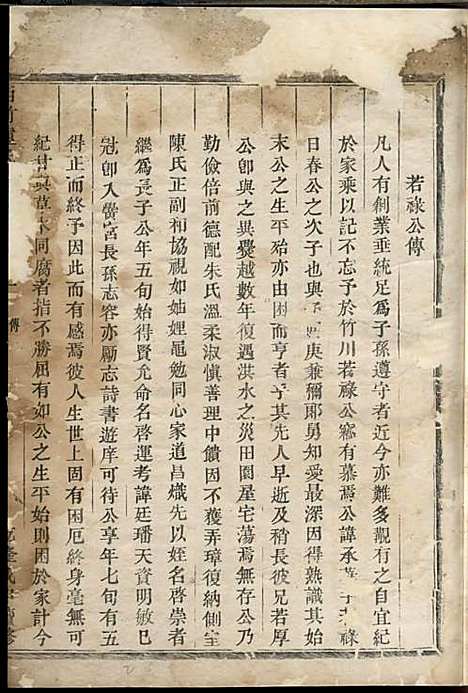 若祿公傳
凡人有創業垂統足爲子孫遵守者近今亦難多覯有之自宜紀
於家乘以記不忘予於竹川若祿公竊有慕焉公諱承 字 祿
日春公之次子也與予 庚兼彌郎舅知愛最深因得熟識其始
末公之生平殆亦由困而亨者乎其先人早逝及稍長彼兄若厚
公卽與之異爨越數年復遇洪水之災田園屋宅蕩焉無存公乃
勤儉倍前德配朱氏溫柔淑慎善理中饋因不獲弄璋復納側室
陳氏正副相協視如姊娌黽勉同心家道昌熾先以姪名啓崇者
繼爲長子公年五旬始得賢允命名啓運考諱廷璠天資明敏已
冠卽入黌宮長孫志容亦勵志詩書遊庠可待公享年七旬有五
得正而終予因此而有感焉彼人生世上固有困厄終身毫無可
紀 與草木同腐者指不勝屈有如公之生平始則困於家計今
傳